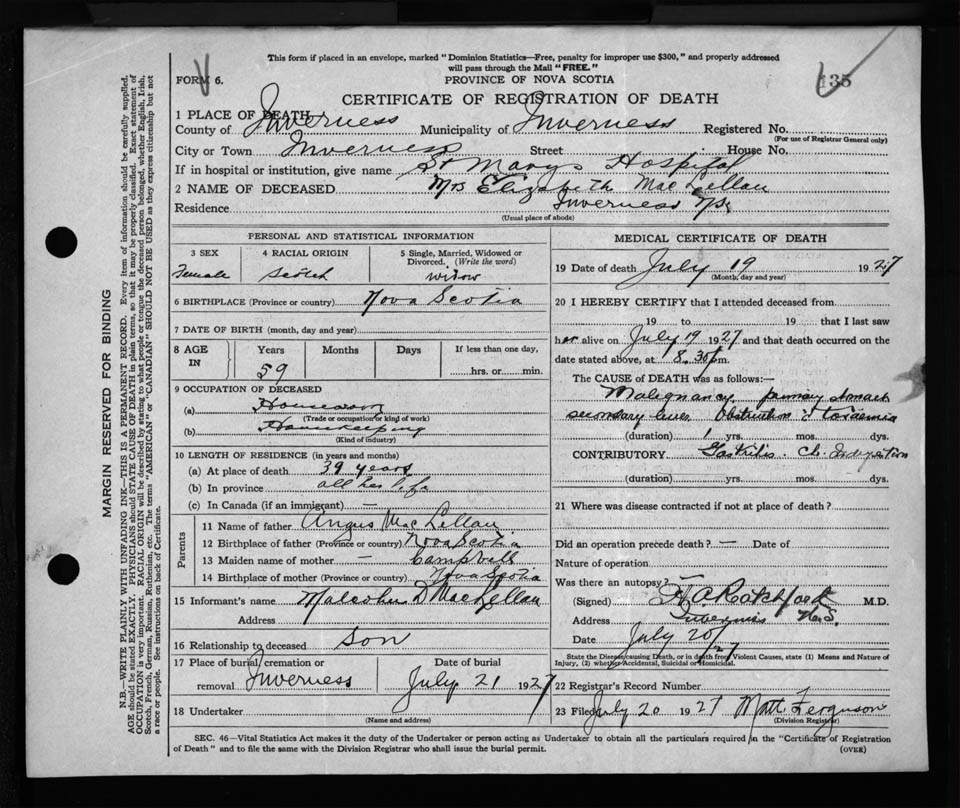 This form if placed in an envelope, marked "Dominion Statistics—Free, penalty for improper use $300," and properly addressed
will pass through the Mail "FREE."
FORM 6.
PROVINCE OF NOVA SCOTIA
135
CERTIFICATE OF REGISTRATION OF DEATH
1 PLACE OF DEATH
County of Inverness Municipality of Inverness Registered No.
(For use of Registrar General only)
City or Town Inverness Street : House No.
If in hospital or institution, give name St Marys Hospital
2 NAME OF DECEASED Mrs Elizabeth MacLellan
Residence Inverness NS.
(Usual place of abode)
PERSONAL AND STATISTICAL INFORMATION
3 SEX 4 RACIAL ORIGIN 5 Single, Married, Widowed or
Divorced. (Write the word)
Female Scotch Widow
6 BIRTHPLACE (Province or country) Nova Scotia
7 DATE OF BIRTH (month, day and year)
8 AGE IN Years Months Days If less than one day,
59 hrs. or min.
9 OCCUPATION OF DECEASED
(a)
(Trade or occupation or kind of work)
(b) Housekeeping
(Kind of industry)
10 LENGTH OF RESIDENCE (in years and months)
(a) At place of death 39 years
(b) In province all her life
(c) In Canada (if an immigrant) —
Parents
11 Name of father Angus MacLellan
12 Birthplace of father (Province or country) Nova Scotia
13 Maiden name of mother — Campbell
14 Birthplace of mother (Province or country) Nova Scotia
15 Informant's name Malcolm D MacLellan
Address
16 Relationship to deceased Son
17 Place of burial, cremation or Date of burial
removal Inverness July 21 1927
18 Undertaker
(Name and address)
MEDICAL CERTIFICATE OF DEATH
19 Date of death July 19 1927
(Month, day and year)
20 I HEREBY CERTIFY that I attended deceased from
19 to 19 that I last saw
her alive on July 19 1927 and that death occurred on the
date stated above, at 8.30 p.m.
The CAUSE of DEATH was as follows:—
Malignancy primary stomach
secondary liver Obstruction & toxaemia
(duration) 1 yrs. mos. dys.
CONTRIBUTORY Gastritis. Ch. Indigestion
(duration) yrs. mos. dys.
21 Where was disease contracted if not at place of death?
Did an operation precede death? — Date of
Nature of operation
Was there an autopsy? —
(Signed) Ratchford M.D.
Address Inverness N.S.
Date July 20/27
State the Disease causing Death, or in death from Violent Causes, state (1) Means and Nature of
Injury, (2) whether Accidental, Suicidal or Homicidal.
22 Registrar's Record Number
23 Filed July 20 1927 Matt. Ferguson
(Division Registrar)
SEC. 46—Vital Statistics Act makes it the duty of the Undertaker or person acting as Undertaker to obtain all the particulars required in the "Certificate of Registration
of Death" and to file the same with the Division Registrar who shall issue the burial permit.
(OVER)
MARGIN RESERVED FOR BINDING
N.B.—WRITE PLAINLY WITH UNFADING INK—THIS IS A PERMANENT RECORD. Every item of information should be carefully supplied.
AGE should be stated EXACTLY. PHYSICIANS should STATE CAUSE OF DEATH in plain terms, so that it may be properly classified. Exact statement of
OCCUPATION is very important. RACIAL ORIGIN will be described by stating to what people or tongue the deceased person belonged, whether English, Irish,
Scotch, French, German, Russian, Ruthenian, etc. The terms "AMERICAN" or "CANADIAN" SHOULD NOT BE USED as they express citizenship but not
a race or people. See instructions on back of Certificate.